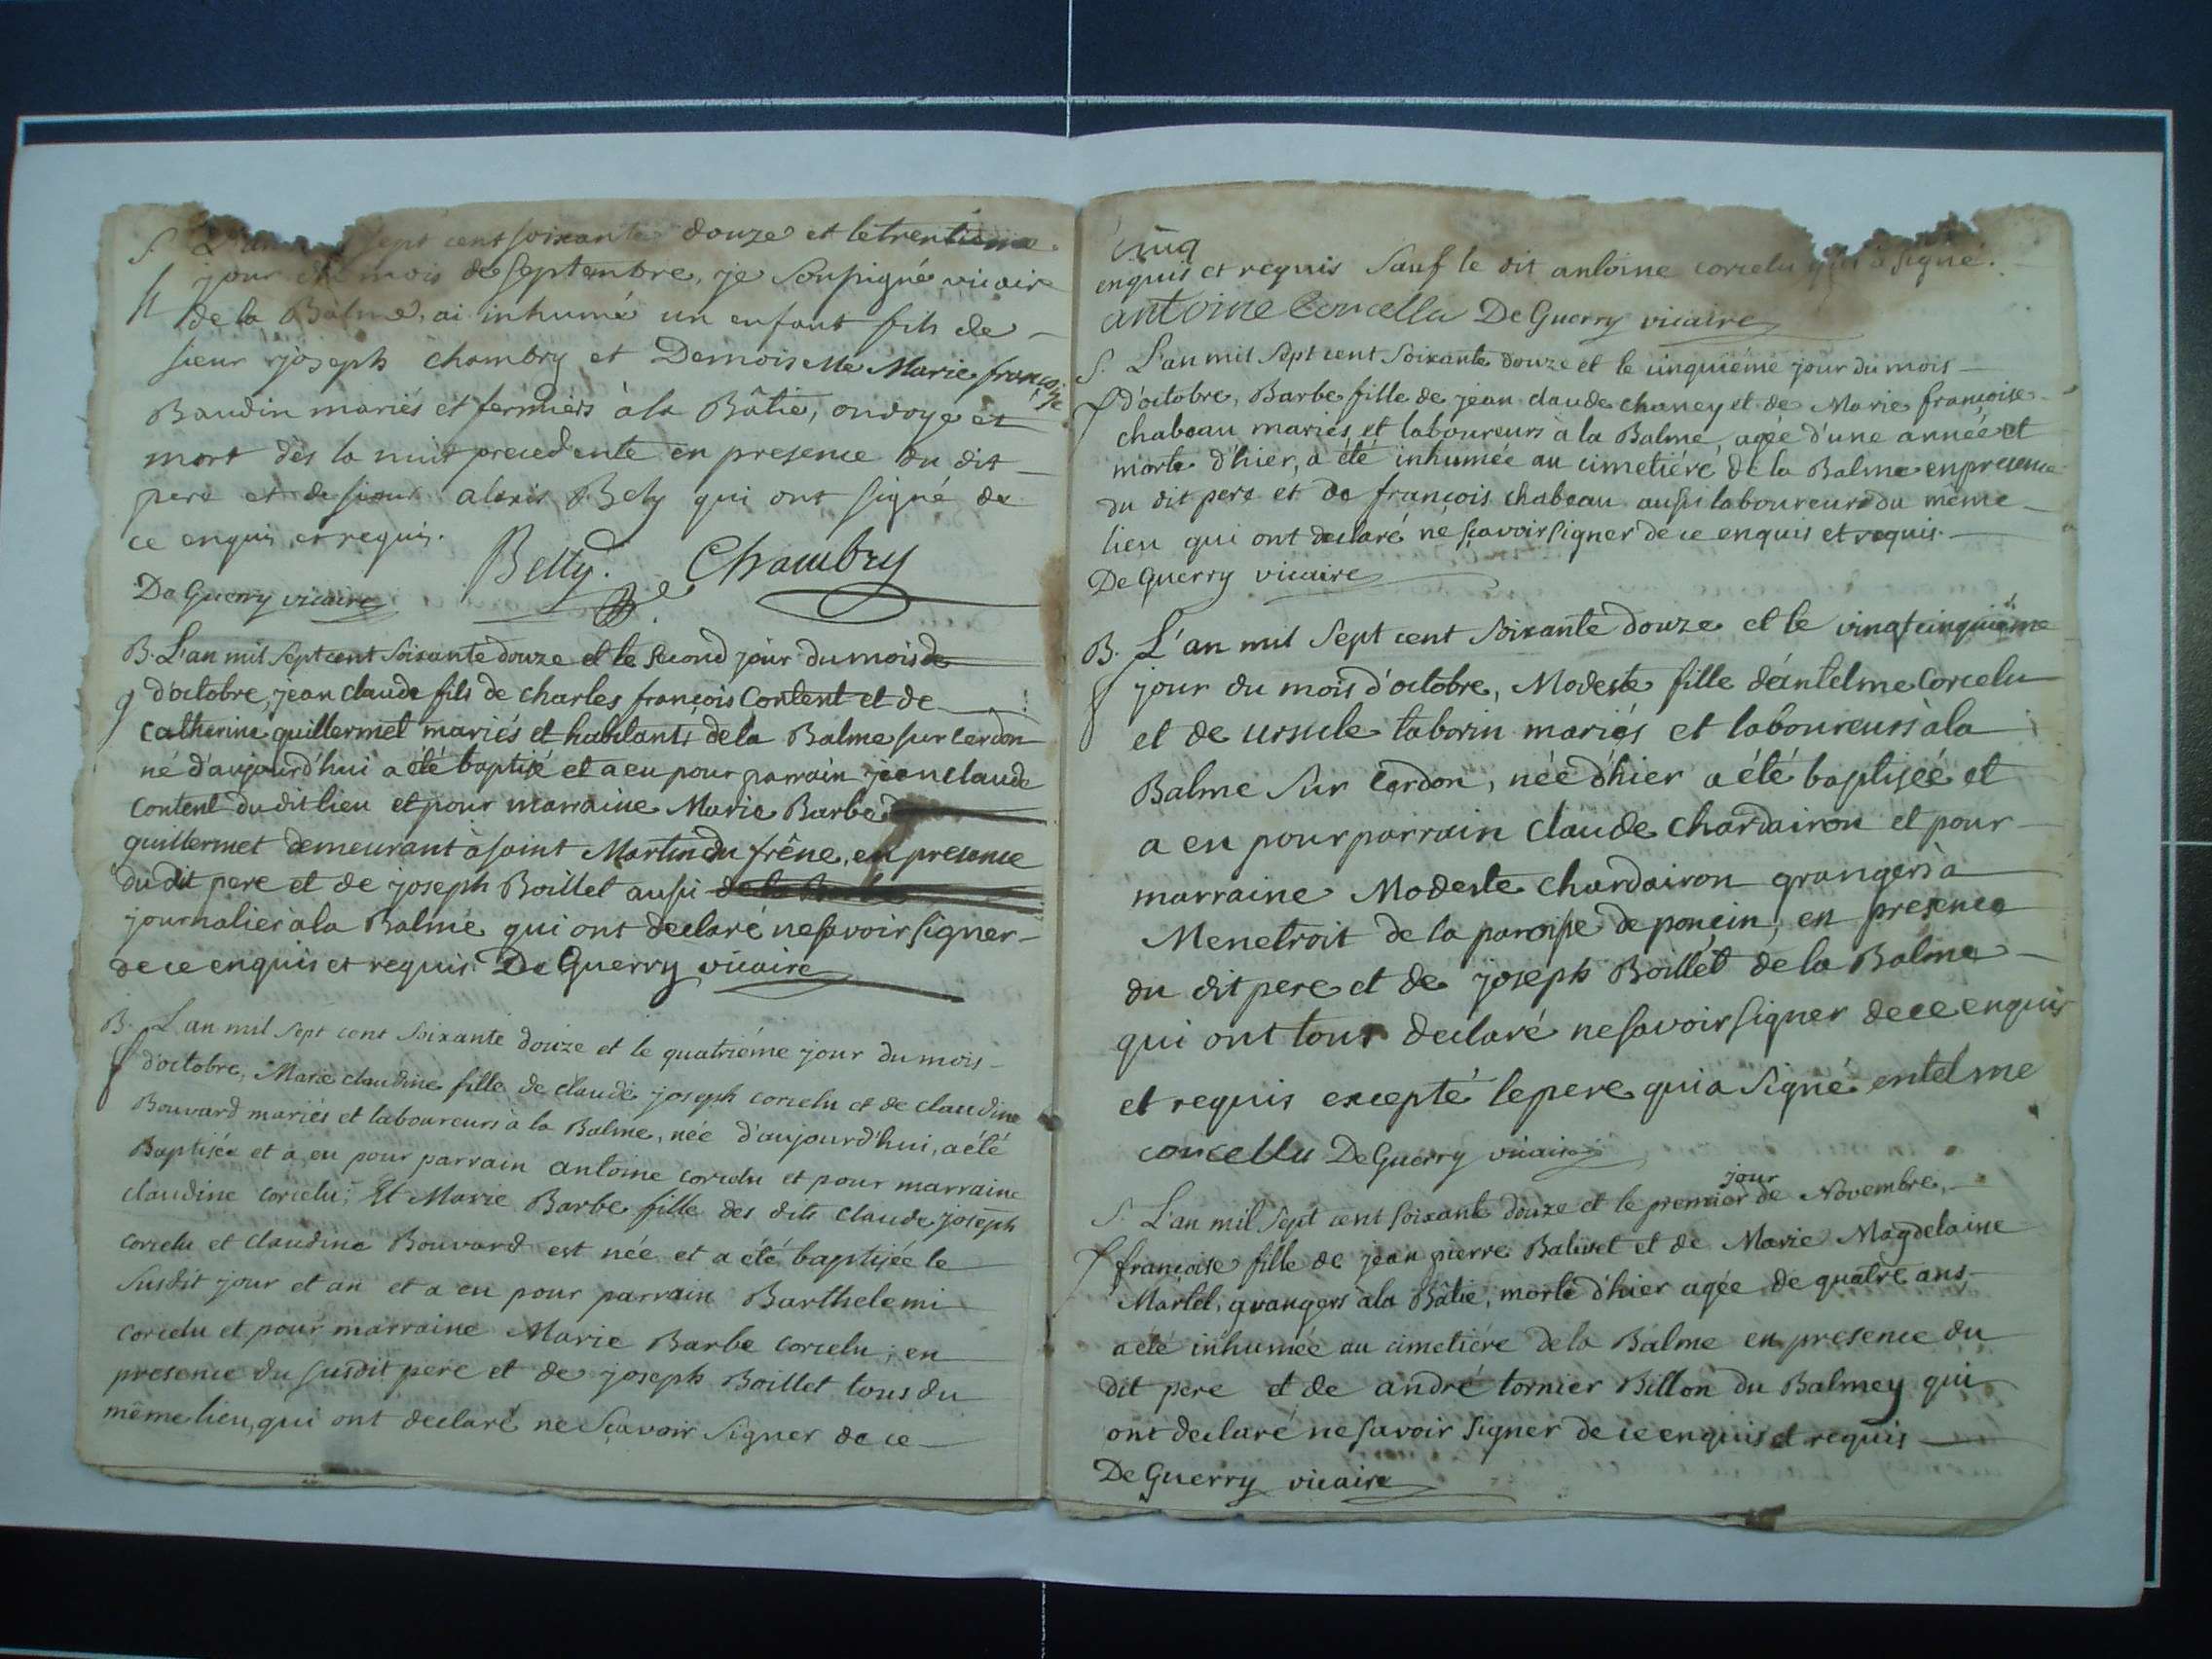 S. L'an sept cent soixante douze et le trentième
jour du mois de septembre, je soussigné vicaire
de la Balme, ai inhumé un enfant fils de
sieur joseph chambry et Demoiselle Marie françoise
Baudin mariés et fermiers à la Bâtie, ondoyé et
mort dès la nuit precedente en presence du dit
pere et de sieur alexis Bety qui ont signé de
ce enquis et requis.
Betty. Chambry
De Guerry vicaire
B. L'an mil sept cent soixante douze et le second jour du mois de
g d'octobre, jean claude fils de charles françois Content et de
Catherine guillermet mariés et habitants de la Balme sur cerdon
né d'aujourd'hui a été baptisé et a eu pour parrain jean claude
Content du dit lieu et pour marraine Marie Barbe
guillermet demeurant à saint Martin du frêne, en presence
du dit pere et de joseph Boillet aussi
journalier à la Balme qui ont declaré ne savoir signer
de ce enquis et requis. De Guerry vicaire
B. L'an mil sept cent soixante douze et le quatriéme jour du mois
f d'octobre, Marie claudine fille de claude joseph corcelu et de claudine
Bouvard mariés et laboureurs à la Balme, née d'aujourd'hui, a été
Baptisée et a eu pour parrain antoine corcelu et pour marraine
claudine corcelu; Et Marie Barbe fille des dits claude joseph
corcelu et claudine Bouvard est née et a été baptisée le
susdit jour et an et a eu pour parrain Barthelemi
corcelu et pour marraine Marie Barbe corcelu; en
presence du susdit pere et de joseph Boillet tous du
même lieu, qui ont declaré ne sçavoir signer de ce
cinq
enquis et requis sauf le dit antoine corcelu qui a signé.
antoine Corcellu De Guerry vicaire
S. L'an mil sept cent soixante douze et le cinquième jour du mois
f d'octobre, Barbe fille de jean claude chaney et de Marie françoise
chabeau mariés et laboureurs à la Balme, agée d'une année et
morte d'hier, a été inhumée au cimetiére de la Balme en presence
du dit pere et de françois chabeau aussi laboureurs du même
lieu qui ont declaré ne sçavoir signer de ce enquis et requis.
De Guerry vicaire
B. L'an mil sept cent soixante douze et le vingt cinquième
f jour du mois d'octobre, Modeste fille d'éantelme Corcelu
et de ursule taborin mariés et laboureurs à la
Balme sur Cerdon, née d'hier a été baptisée et
a eu pour parrain claude chardairon et pour
marraine Modeste chardairon grangers à
Menetroit de la paroisse de poncin, en presence
du dit pere et de joseph Boillet de la Balme
qui ont tous declaré ne savoir signer de ce enquis
et requis excepté le pere qui a signé entelme
corcellu De Guerry vicaire
jour
S. L'an mil sept cent soixante douze et le premier de Novembre,
f françoise fille de jean pierre Balivet et de Marie Magdelaine
Martel, grangers à la Bâtie, morte d'hier agée de quatre ans,
a été inhumée au cimetiére de la Balme en presence du
dit pere et de andré tornier Billon du Balmey qui
ont declaré ne savoir signer de ce enquis et requis
De Guerry vicaire